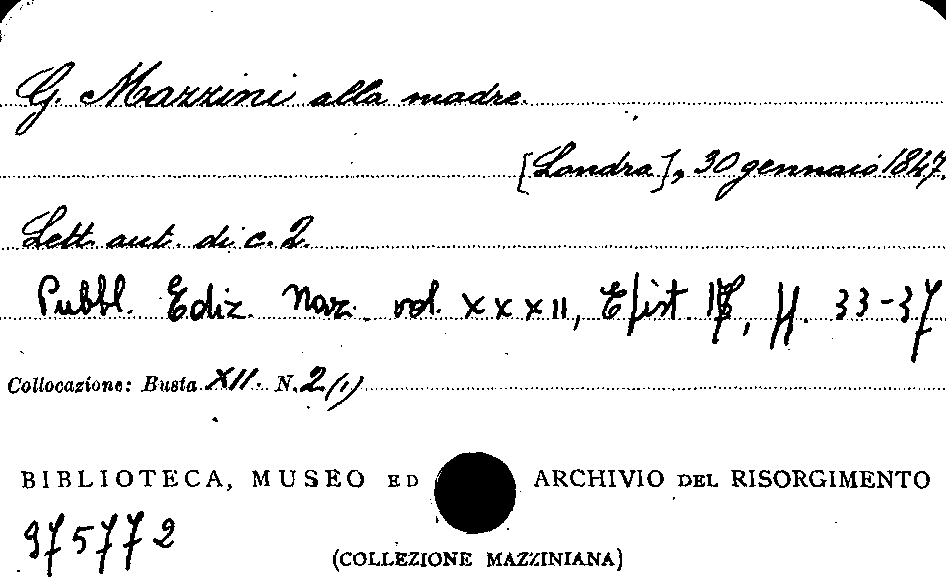 G. Mazzini alla madre.
[Londra], 30 gennaio 1847.
Lett. aut. di c. 2
Pubbl. Ediz. Naz. vol. XXXII, Epist. pp. 33-37
Collocazione: Busta XII. N. 2 (1)
BIBLIOTECA, MUSEO ED ARCHIVIO DEL RISORGIMENTO
375772
(COLLEZIONE MAZZINIANA)